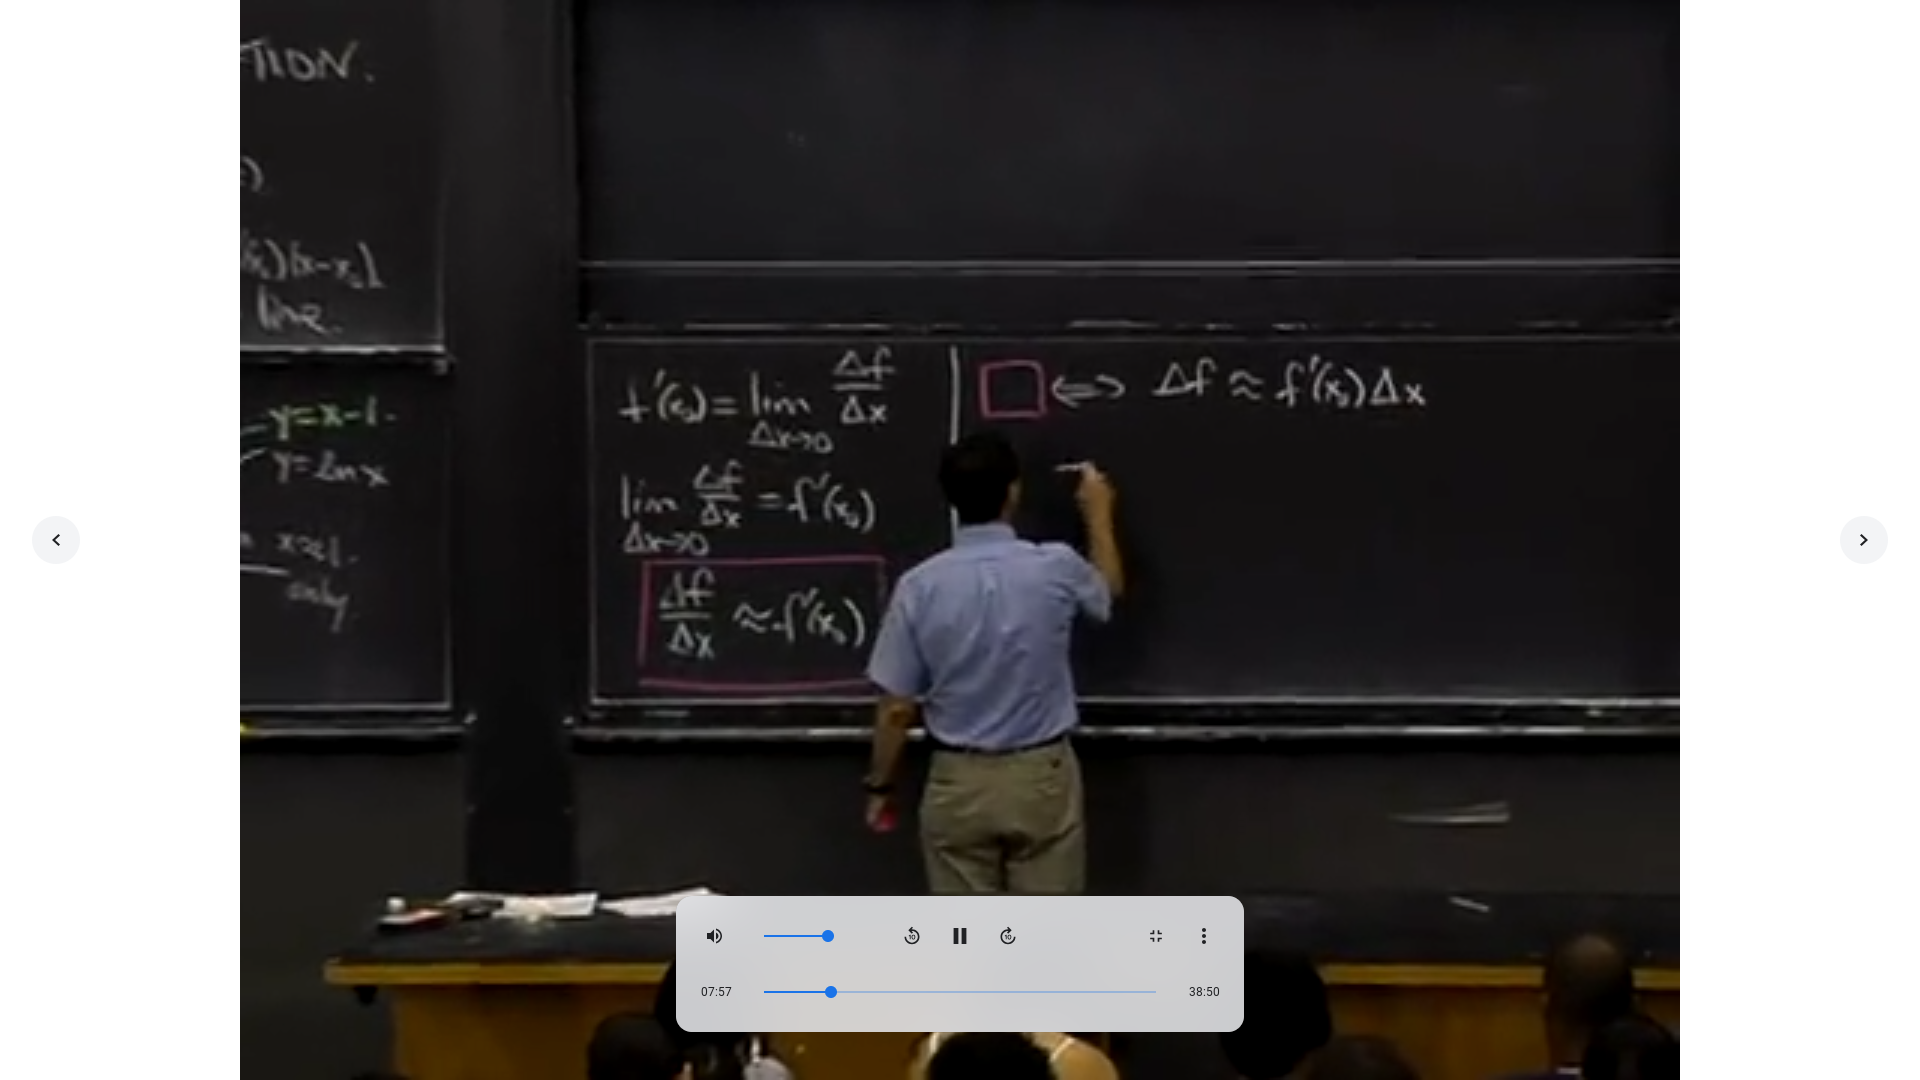 TION.
)
(x₀)(x-x₀)
line.
y=x-1.
y=ln x
x≈1.
only
f'(x₀) = lim Δx→0 Δf/Δx
lim Δx→0 Δf/Δx = f'(x₀)
Δf/Δx ≈ f'(x₀)
□ ⇔ Δf ≈ f'(x₀) Δx
10
10
07:57
38:50